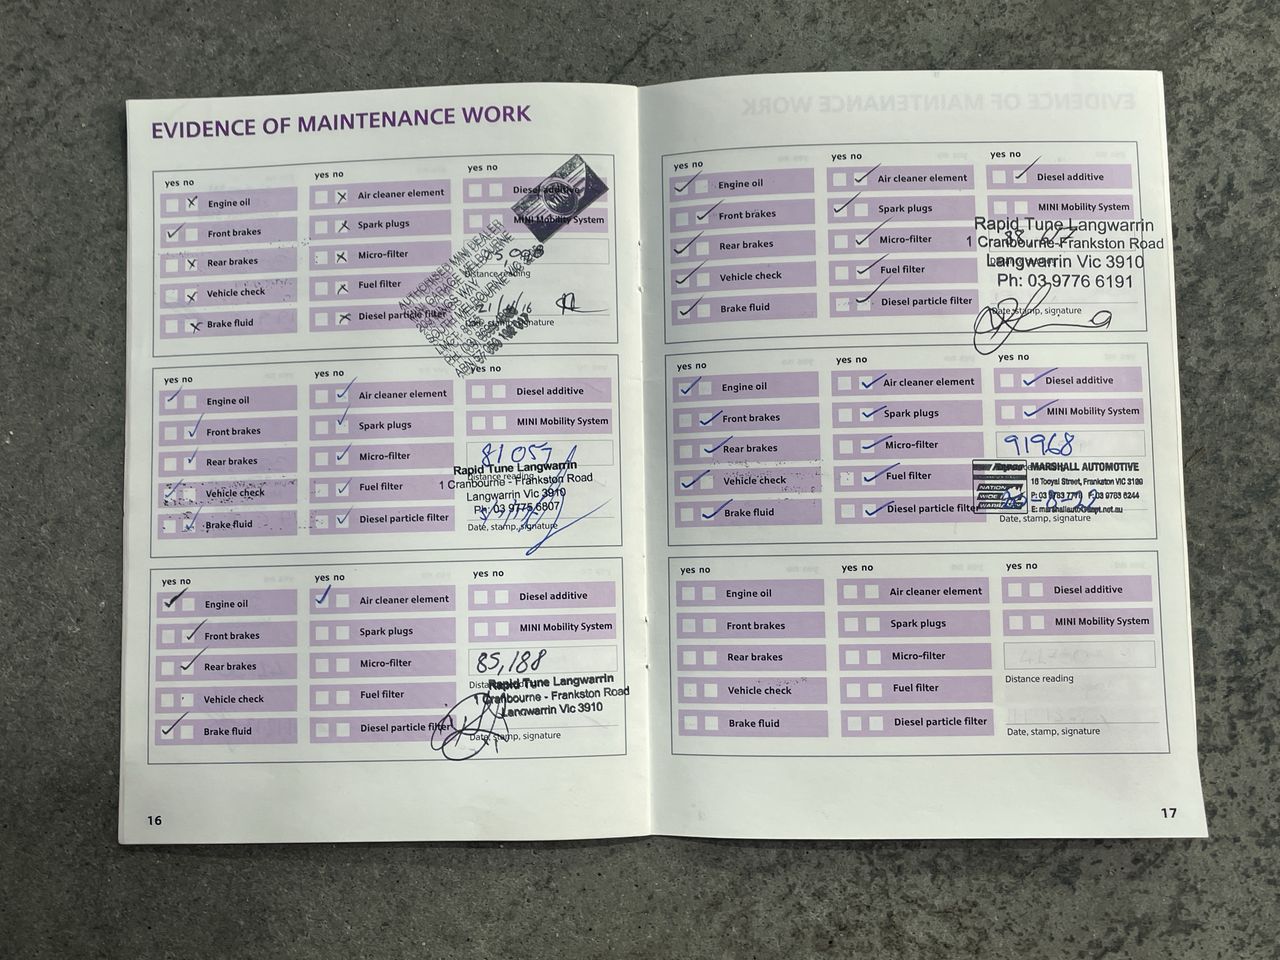 EVIDENCE OF MAINTENANCE WORK
yes no
Engine oil
Front brakes
Rear brakes
Vehicle check
Brake fluid
yes no
Air cleaner element
Spark plugs
Micro-filter
Fuel filter
Diesel particle filter
yes no
Diesel additive
MINI Mobility System
Distance reading
Date, stamp, signature
AUTHORISED MINI DEALER
yes no
Engine oil
Front brakes
Rear brakes
Vehicle check
Brake fluid
yes no
Air cleaner element
Spark plugs
Micro-filter
Fuel filter
Diesel particle filter
yes no
Diesel additive
MINI Mobility System
81057
Distance reading
Rapid Tune Langwarrin
1 Cranbourne - Frankston Road
Langwarrin Vic 3910
Ph: 03 9775 6807
Date, stamp, signature
yes no
Engine oil
Front brakes
Rear brakes
Vehicle check
Brake fluid
yes no
Air cleaner element
Spark plugs
Micro-filter
Fuel filter
Diesel particle filter
yes no
Diesel additive
MINI Mobility System
85,188
Rapid Tune Langwarrin
1 Cranbourne - Frankston Road
Langwarrin Vic 3910
Date, stamp, signature
16
yes no
Engine oil
Front brakes
Rear brakes
Vehicle check
Brake fluid
yes no
Air cleaner element
Spark plugs
Micro-filter
Fuel filter
Diesel particle filter
yes no
Diesel additive
MINI Mobility System
Rapid Tune Langwarrin
1 Cranbourne-Frankston Road
Langwarrin Vic 3910
Ph: 03 9776 6191
Date, stamp, signature
yes no
Engine oil
Front brakes
Rear brakes
Vehicle check
Brake fluid
yes no
Air cleaner element
Spark plugs
Micro-filter
Fuel filter
Diesel particle filter
yes no
Diesel additive
MINI Mobility System
91968
MARSHALL AUTOMOTIVE
Street, Frankston VIC 3199
NATION
WIDE
Date, stamp, signature
yes no
Engine oil
Front brakes
Rear brakes
Vehicle check
Brake fluid
yes no
Air cleaner element
Spark plugs
Micro-filter
Fuel filter
Diesel particle filter
yes no
Diesel additive
MINI Mobility System
Distance reading
Date, stamp, signature
17